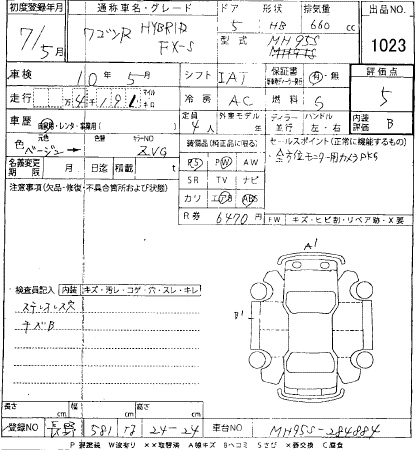 初度登録年月 通称車名・グレード ドア 形状 排気量 出品NO
7/5月 ワゴンR HYBRID FX-S 5 HB 660cc 1023
型式 MH95S
車検 10年 5月 シフト IAT 保証書 有・無 評価点
走行 万4千191 マイル キロ 冷房 AC 燃料 5
車歴 自家用・レンタ・事業用( ) 定員 4人 外車モデル ディーラー 並行 ハンドル 左・右 内装評価 B
色 元色 ベージュ 色替 カラーNO ZVG 装備品(純正品に限る) セールスポイント(正常に機能するもの)
PS PW AW ・全方位モニター用カメラPKG
名義変更期限 月 日迄 積載 t SR TV ナビ
注意事項(欠品・修復・不具合箇所および状態) カワ エアB ABS
R券 6470円 FW キズ・ヒビ割・リペア跡・X要
A1
B1
検査員記入 内装 キズ・汚レ・コゲ・穴・スレ・キレ
ステレオレス穴
キズB
長さ cm 幅 cm 高さ cm
登録NO 長野 581 さ 24-24 車台NO MH95S-284884
P 要塗装 W波有リ ××取替済 A線キズ Bヘコミ Sさび ×要交換 C腐食